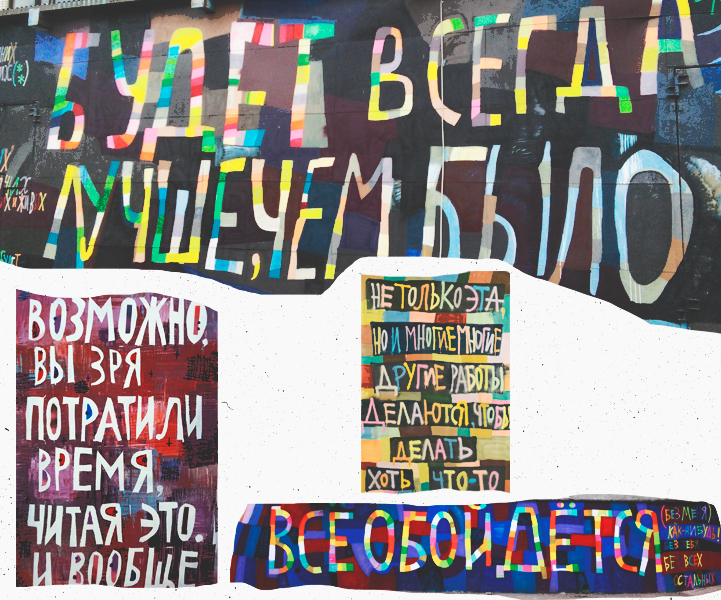 БУДЕТ ВСЕГДА
ЛУЧШЕ, ЧЕМ БЫЛО
ВОЗМОЖНО,
ВЫ ЗРЯ
ПОТРАТИЛИ
ВРЕМЯ,
ЧИТАЯ ЭТО.
И ВООБЩЕ
НЕ ТОЛЬКО ЭТА,
НО И МНОГИЕ МНОГИЕ
ДРУГИЕ РАБОТЫ
ДЕЛАЮТСЯ, ЧТОБЫ
ДЕЛАТЬ
ХОТЬ ЧТО-ТО
ВСЕ ОБОЙДЁТСЯ
(БЕЗ МЕНЯ)
КАК-НИБУДЬ!
БЕЗ ТЕБЯ
БЕЗ ВСЕХ
ОСТАЛЬНЫХ